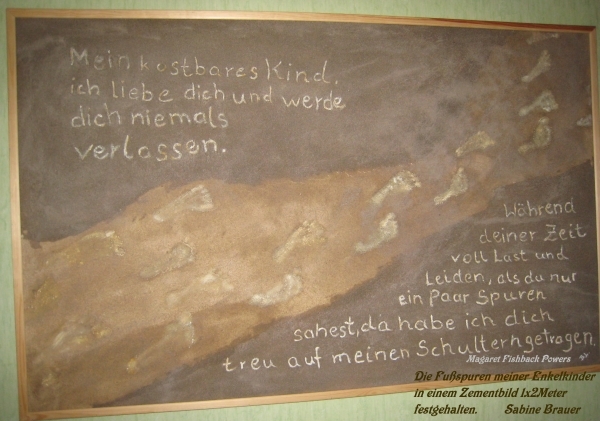 Mein kostbares Kind,
ich liebe dich und werde
dich niemals
verlassen.
Während
deiner Zeit
voll Last und
Leiden, als du nur
ein Paar Spuren
sahest, da habe ich dich
treu auf meinen Schultern getragen.
Magaret Fishback Powers
Die Fußspuren meiner Enkelkinder
in einem Zementbild 1x2Meter
festgehalten. Sabine Brauer